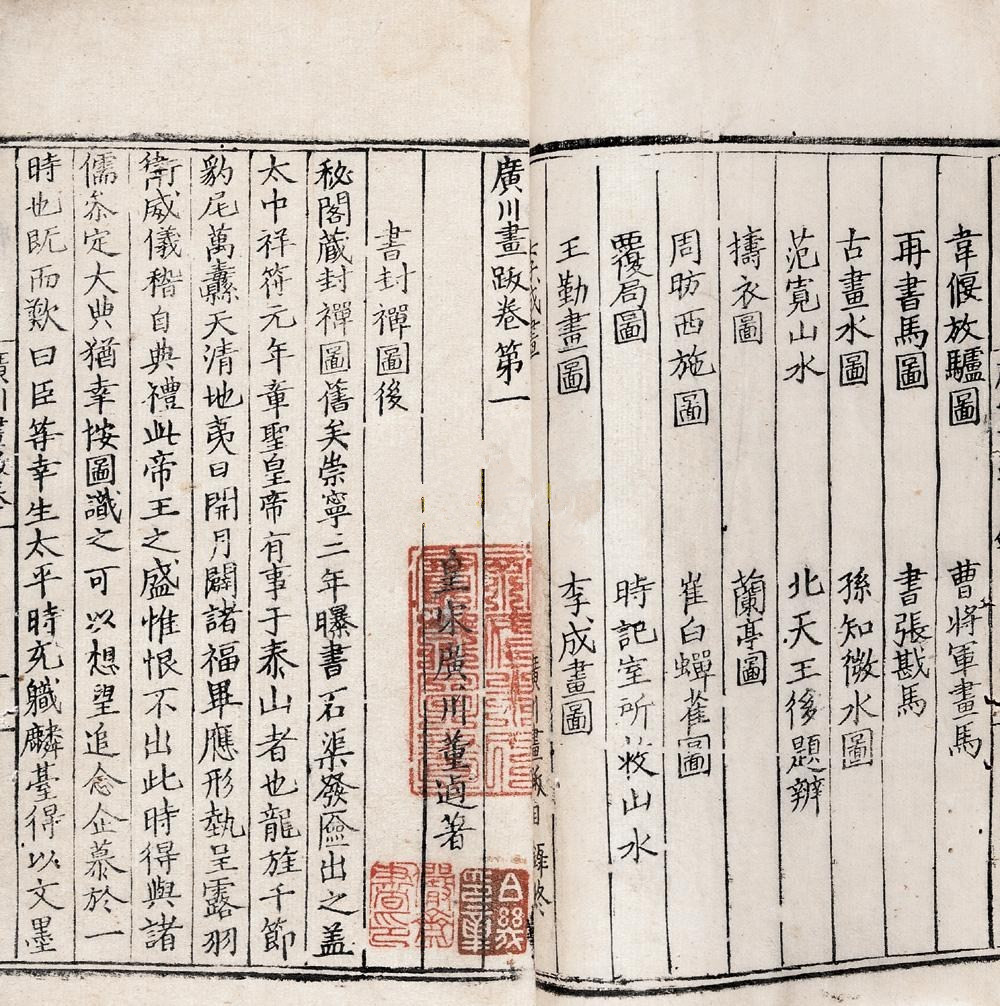 韋偃放驢圖 曹将軍畫馬
再書馬圖 書張戡馬
古畫水圖 孫知微水圖
范寛山水 北天王後題辨
擣衣圖 蘭亭圖
周昉西施圖 崔白蟬雀圖
覆局圖 時記室所收山水
王勤畫圖 李成畫圖
廣川畫跋卷第一
皇宋廣川董逌著
書封禪圖後
秘閣藏封禪圖舊矣崇寧三年曝書石渠發匳出之盖
太中祥符元年章聖皇帝有事于泰山者也龍旌千節
豹尾萬纛天清地夷日開月闢諸福畢應形埶呈露羽
衛威儀稽自典禮此帝王之盛惟恨不出此時得與諸
儒叅定大典猶幸按圖識之可以想望追念企慕於一
時也既而歎曰臣等幸生太平時充職麟臺得以文墨